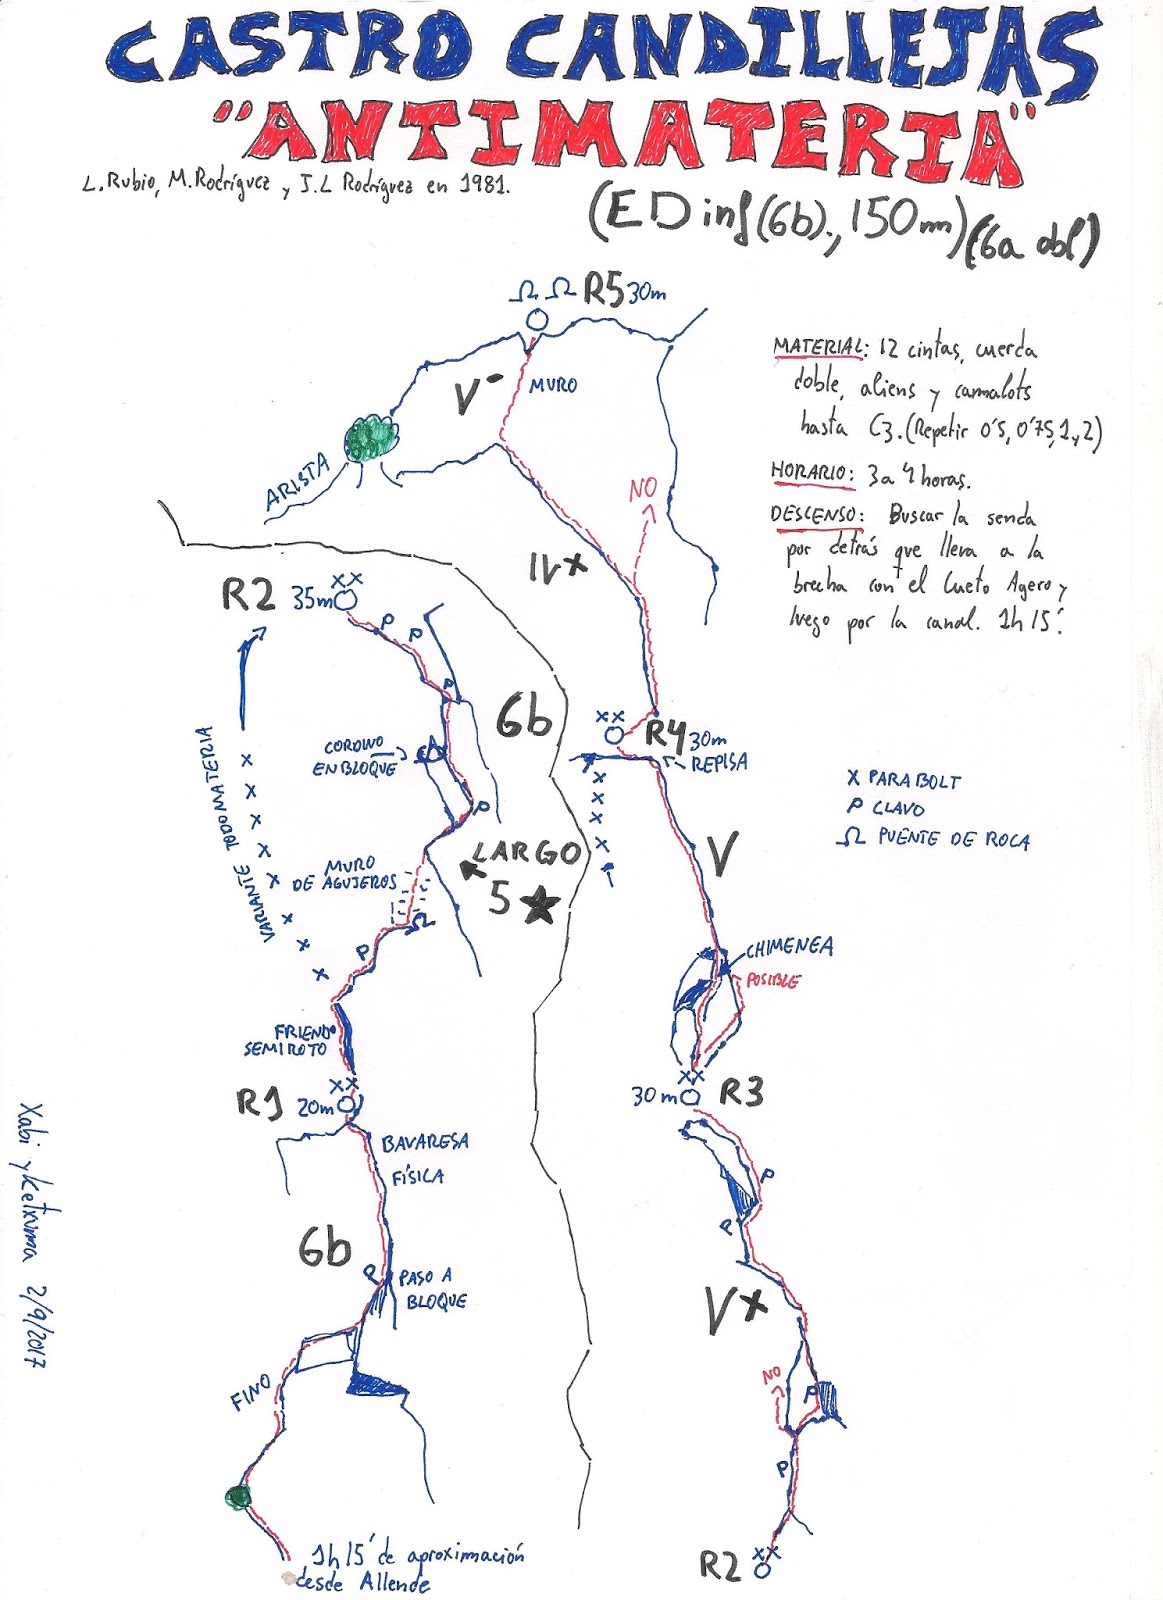 CASTRO CANDILLEJAS
"ANTIMATERIA"
L. Rubio, M. Rodríguez y J.L Rodríguez en 1981.
(ED inf (6b)., 150m) (6a obl)
Ω Ω R5 30m
V-
MURO
ARISTA
NO
IV+
MATERIAL: 12 cintas, cuerda
doble, aliens y camalots
hasta C3. (Repetir 0'5, 0'75, 1 y 2)
HORARIO: 3 a 4 horas.
DESCENSO: Buscar la senda
por detrás que lleva a la
brecha con el Cueto Agero y
luego por la canal. 1h 15'.
R2 35m
XX
P
P
P
6b
CORDINO
EN BLOQUE
P
VARIANTE TODOMATERIA
MURO
DE AGUJEROS
LARGO
5 ★
Ω
P
FRIEND
SEMIROTO
XX
R1 20m
BAVARESA
FÍSICA
6b
P
PASO A
BLOQUE
FINO
1h 15' de aproximación
desde Allende
XX
R4 30m
REPISA
X PARABOLT
P CLAVO
Ω PUENTE DE ROCA
V
CHIMENEA
POSIBLE
XX
30m R3
P
P
V+
NO
P
P
XX
R2
Xabi y Ketxuma 2/9/2017